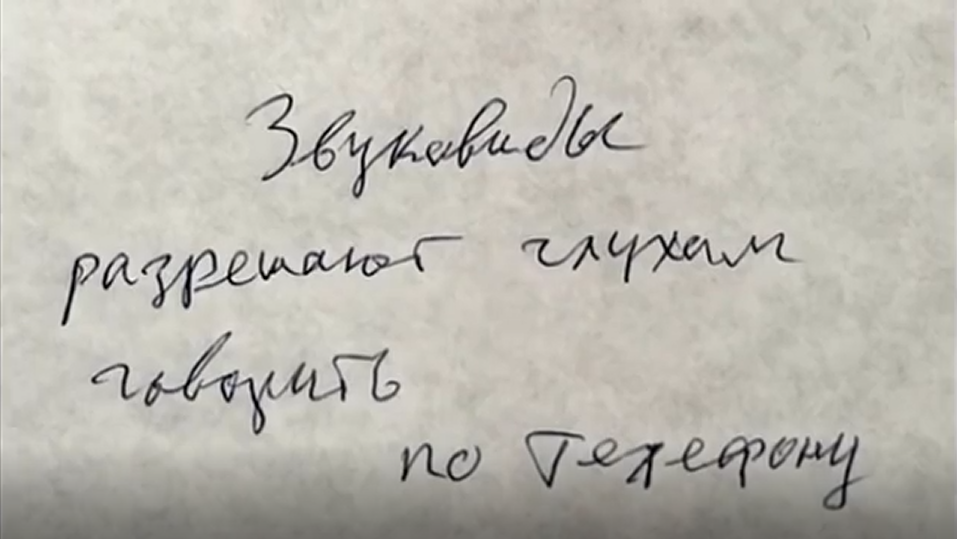 Звуковиды
разрешают глухам
говорить
по телефону